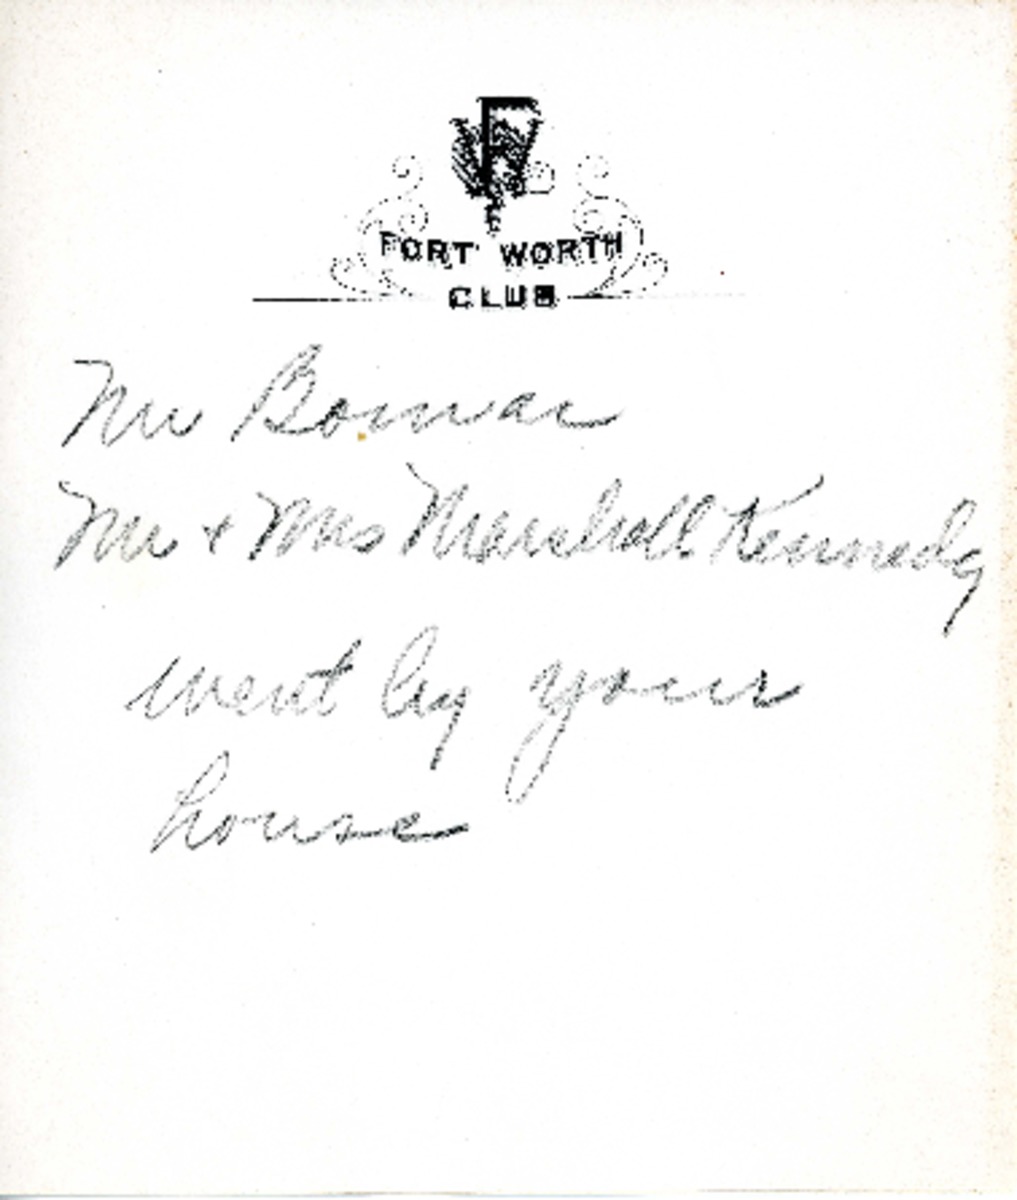 FORT WORTH
CLUB
Mr Bomar
Mr + Mrs Marshall Kennedy
went by your
house